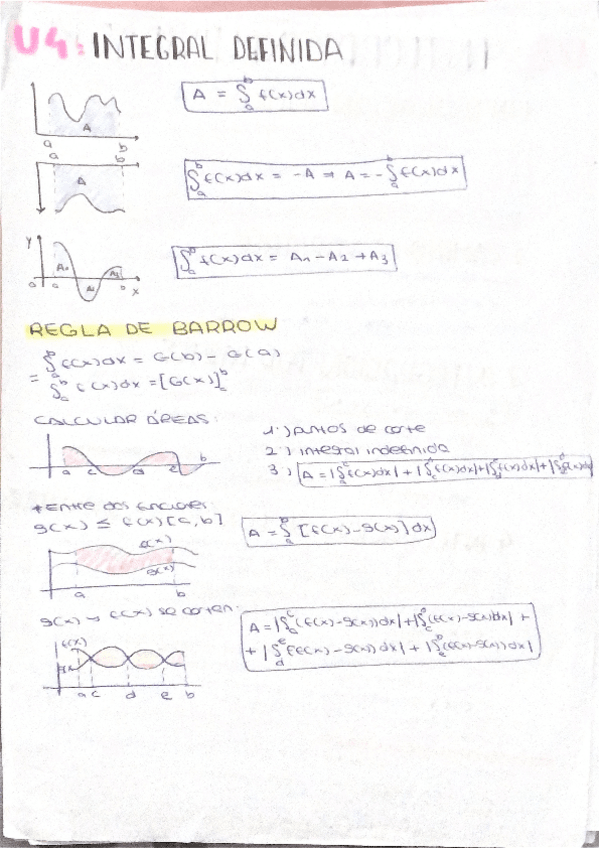 U4: INTEGRAL DEFINIDA
A = ∫ₐᵇ f(x)dx
A
a b
a b
∫ₐᵇ f(x)dx = -A ⇒ A = -∫ₐᵇ f(x)dx
A
y
∫ₐᵇ f(x)dx = A₁ - A₂ + A₃
A₁ A₂ A₃
a b x
REGLA DE BARROW
∫ₐᵇ f(x)dx = G(b) - G(a)
= ∫ₐᵇ f(x)dx = [G(x)]ₐᵇ
CALCULAR ÁREAS:
1º) puntos de corte
2º) integral indefinida
3º) A = |∫ₐᶜ f(x)dx| + |∫f(x)dx| + |∫f(x)dx| + |∫
a c d e b
* Entre dos funciones:
g(x) ≤ f(x) [a, b]
A = ∫ₐᵇ [f(x) - g(x)] dx
f(x)
g(x)
a b
g(x) y f(x) se corten:
A = |∫ₐᶜ (f(x) - g(x))dx| + |∫(f(x) - g(x))dx| +
+ |∫_d^e f(x) - g(x))dx| + |∫ₑᵇ (f(x) - g(x))dx|
f(x)
a c d e b